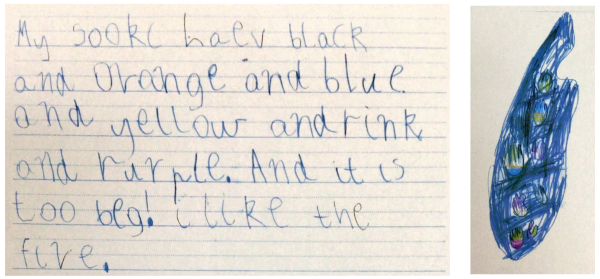 My sookc haev black
and Orange and blue
and yellow andrink
and rurple. And it is
too beg! i like the
five.